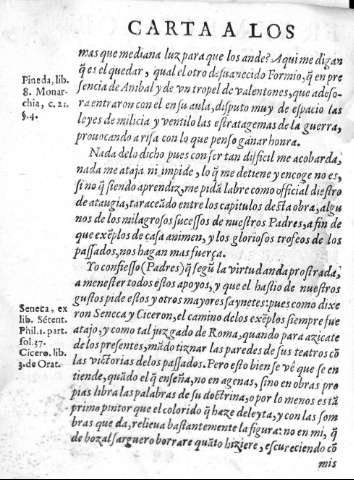 CARTA A LOS
mas que mediana luz para que los ande? Aqui me digan
q̃ es el quedar, qual el otro desuanecido Formio, q̃ en pre
sencia de Anibal y de vn tropel de valentones, que adeso-
ra entraron con el en su aula, disputo muy de espacio las
leyes de milicia y ventilo las estratagemas de la guerra,
prouocando a risa con lo que penso ganar honra.
Pineda, lib.
8. Monar-
chia, c. 21.
§.4.
Nada de lo dicho pues con ser tan dificil me acobarda,
nada me ataja ni impide, lo q̃ me detiene y encoge no es,
si no q̃ siendo aprendiz, me pidã labre como official diestro
de ataugia, taraceãdo entre los capitulos desta obra, algu
nos de los milagrosos sucessos de nuestros Padres, a fin de
que exẽplos de casa animen, y los gloriosos trofeos de los
passados, nos hagan mas fuerça.
Yo confiesso (Padres) q̃ segũ la virtud anda prostrada,
a menester todos estos apoyos, y que el hastio de nuestros
gustos pide estos y otros mayores saynetes: pues como dixe
ron Seneca y Ciceron, el camino de los exẽplos siempre fue
atajo, y como tal juzgado de Roma, quando para azicate
de los presentes, mãdo tiznar las paredes de sus teatros cõ
las victorias de los passados. Pero esto bien se vè que se en
tiende, quãdo el q̃ enseña, no en agenas, sino en obras pro
pias libra las palabras de su doctrina, o por lo menos es tã
primo pintor que el colorido q̃ haze deleyta, y con las som
bras que da, relieua bastantemente la figura: no en mi, q̃
de bozal sarguero borrare quãto hiziere, escureciendo cõ
mis
Seneca, ex
lib. Sẽtent.
Phil. 1. part.
fol. 37.
Cicero. lib.
3. de Orat.